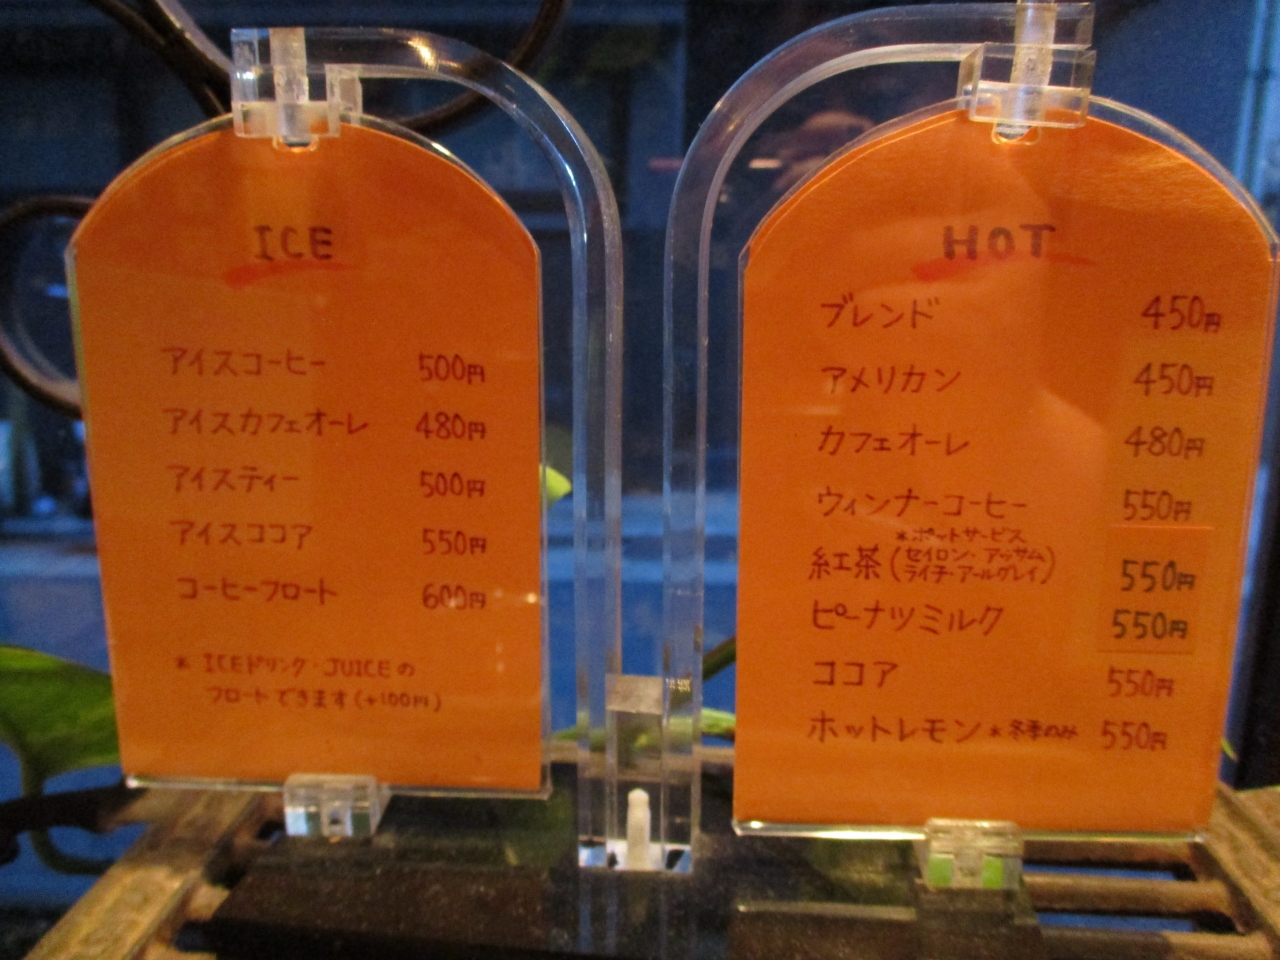 ICE
アイスコーヒー 500円
アイスカフェオーレ 480円
アイスティー 500円
アイスココア 550円
コーヒーフロート 600円
* ICEドリンク・JUICEの
フロートできます(+100円)
HOT
ブレンド 450円
アメリカン 450円
カフェオーレ 480円
ウィンナーコーヒー 550円
*ポットサービス
紅茶(セイロン・アッサム ライチ・アールグレイ) 550円
ピーナツミルク 550円
ココア 550円
ホットレモン *冬季のみ 550円